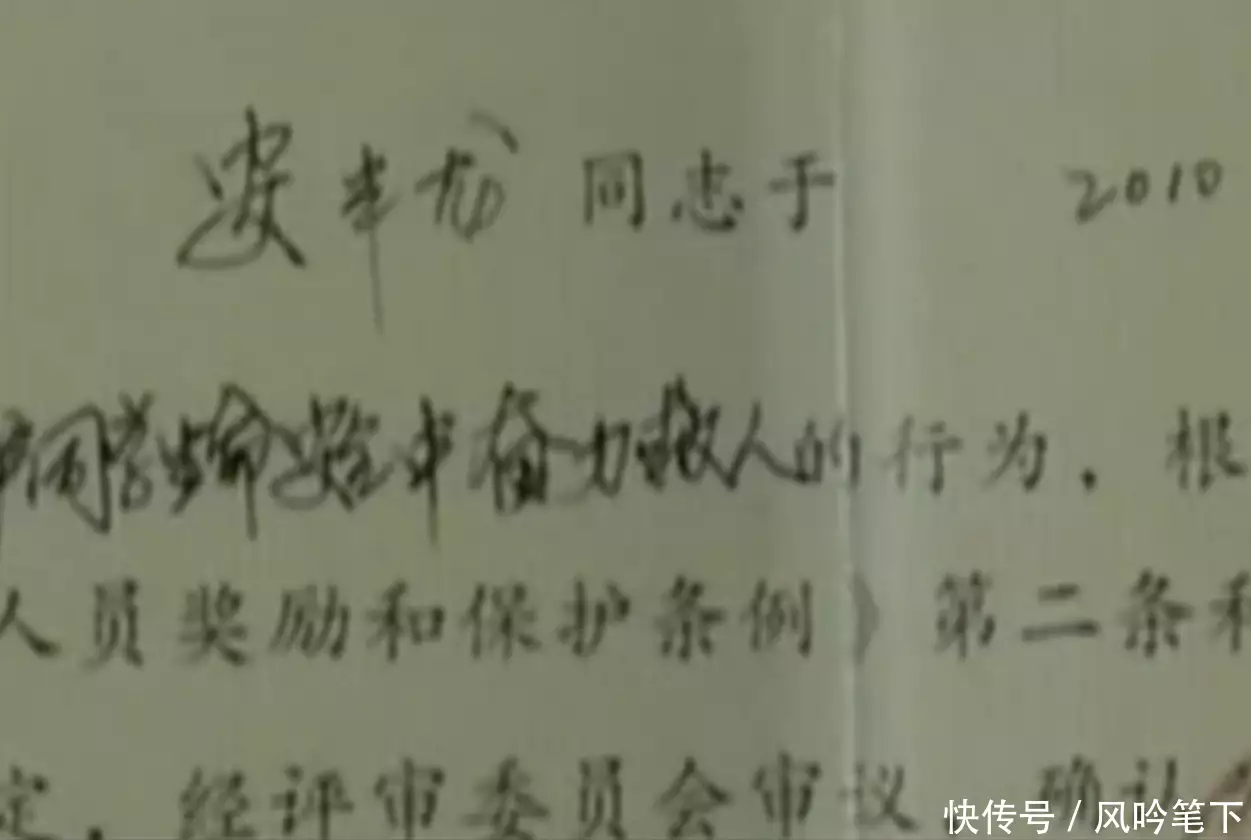 安丰龙同志于 2010
同学生命安危中奋力救人的行为，根
人员奖励和保护条例）第二条和
定，经评审委员会审议 确认
快传号 / 风吟笔下